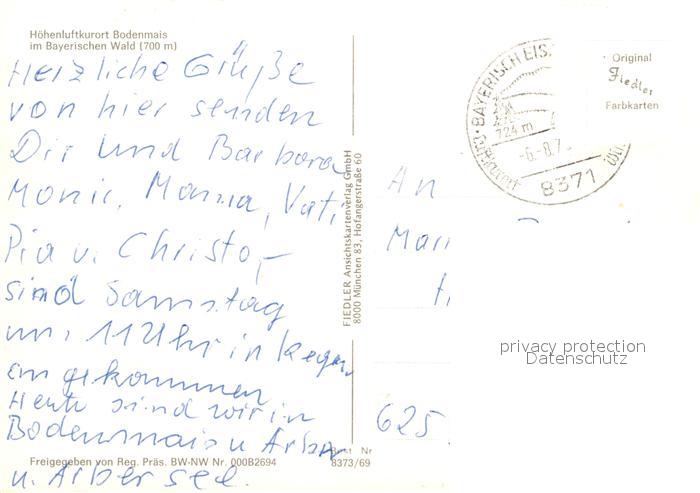 Höhenluftkurort Bodenmais
im Bayerischen Wald (700 m)
Herzliche Grüße
von hier senden
Dir und Barbara
Moni, Mama, Vati,
Pia u. Christo,
sind Samstag
um 11 Uhr in Regen
angekommen
Heute sind wir in
Bodenmais u Arber
u. Arbersee.
Freigegeben von Reg. Präs. BW-NW Nr. 000B2694
Nr
8373/69
FIEDLER Ansichtskartenverlag GmbH
8000 München 83, Hofangerstraße 60
BAYERISCH EIS
724 m
-6.-8.7
Luftkurort
8371
Original
Fiedler
Farbkarten
An
625
privacy protection
Datenschutz